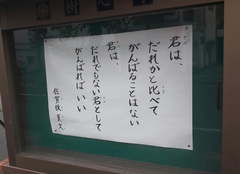 君は、
だれかと比べて
がんばることはない
君は、
だれでもない君として
がんばれば いい